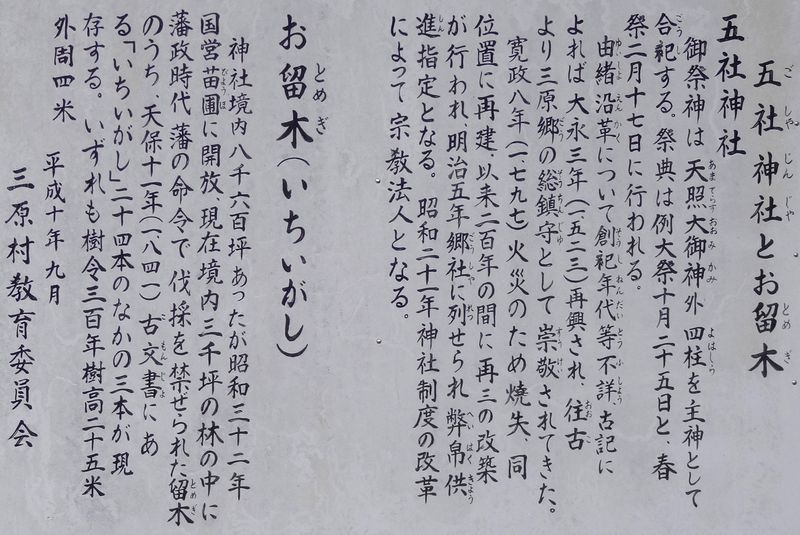 五社神社とお留木
五社神社
御祭神は天照大御神外四柱を主神として
合祀する。祭典は例大祭十月二十五日と、春
祭二月十七日に行われる。
由緒沿革について創祀年代等不詳古記に
よれば大永三年(一、五二三)再興され、往古
より三原郷の総鎮守として崇敬されてきた。
寛政八年(一、七九七)火災のため焼失、同
位置に再建、以来二百年の間に再三の改築
が行われ、明治五年郷社に列せられ弊帛供
進指定となる。昭和二十一年神社制度の改革
によって宗教法人となる。
お留木(いちいがし)
神社境内八千六百坪あったが昭和三十二年
国営苗圃に開放、現在境内三千坪の林の中に
藩政時代藩の命令で伐採を禁ぜられた留木
のうち、天保十一年(一、八四一)古文書にあ
る「いちいがし」二十四本のなかの三本が現
存する。いずれも樹令三百年樹高二十五米
外周四米
平成十年九月
三原村教育委員会